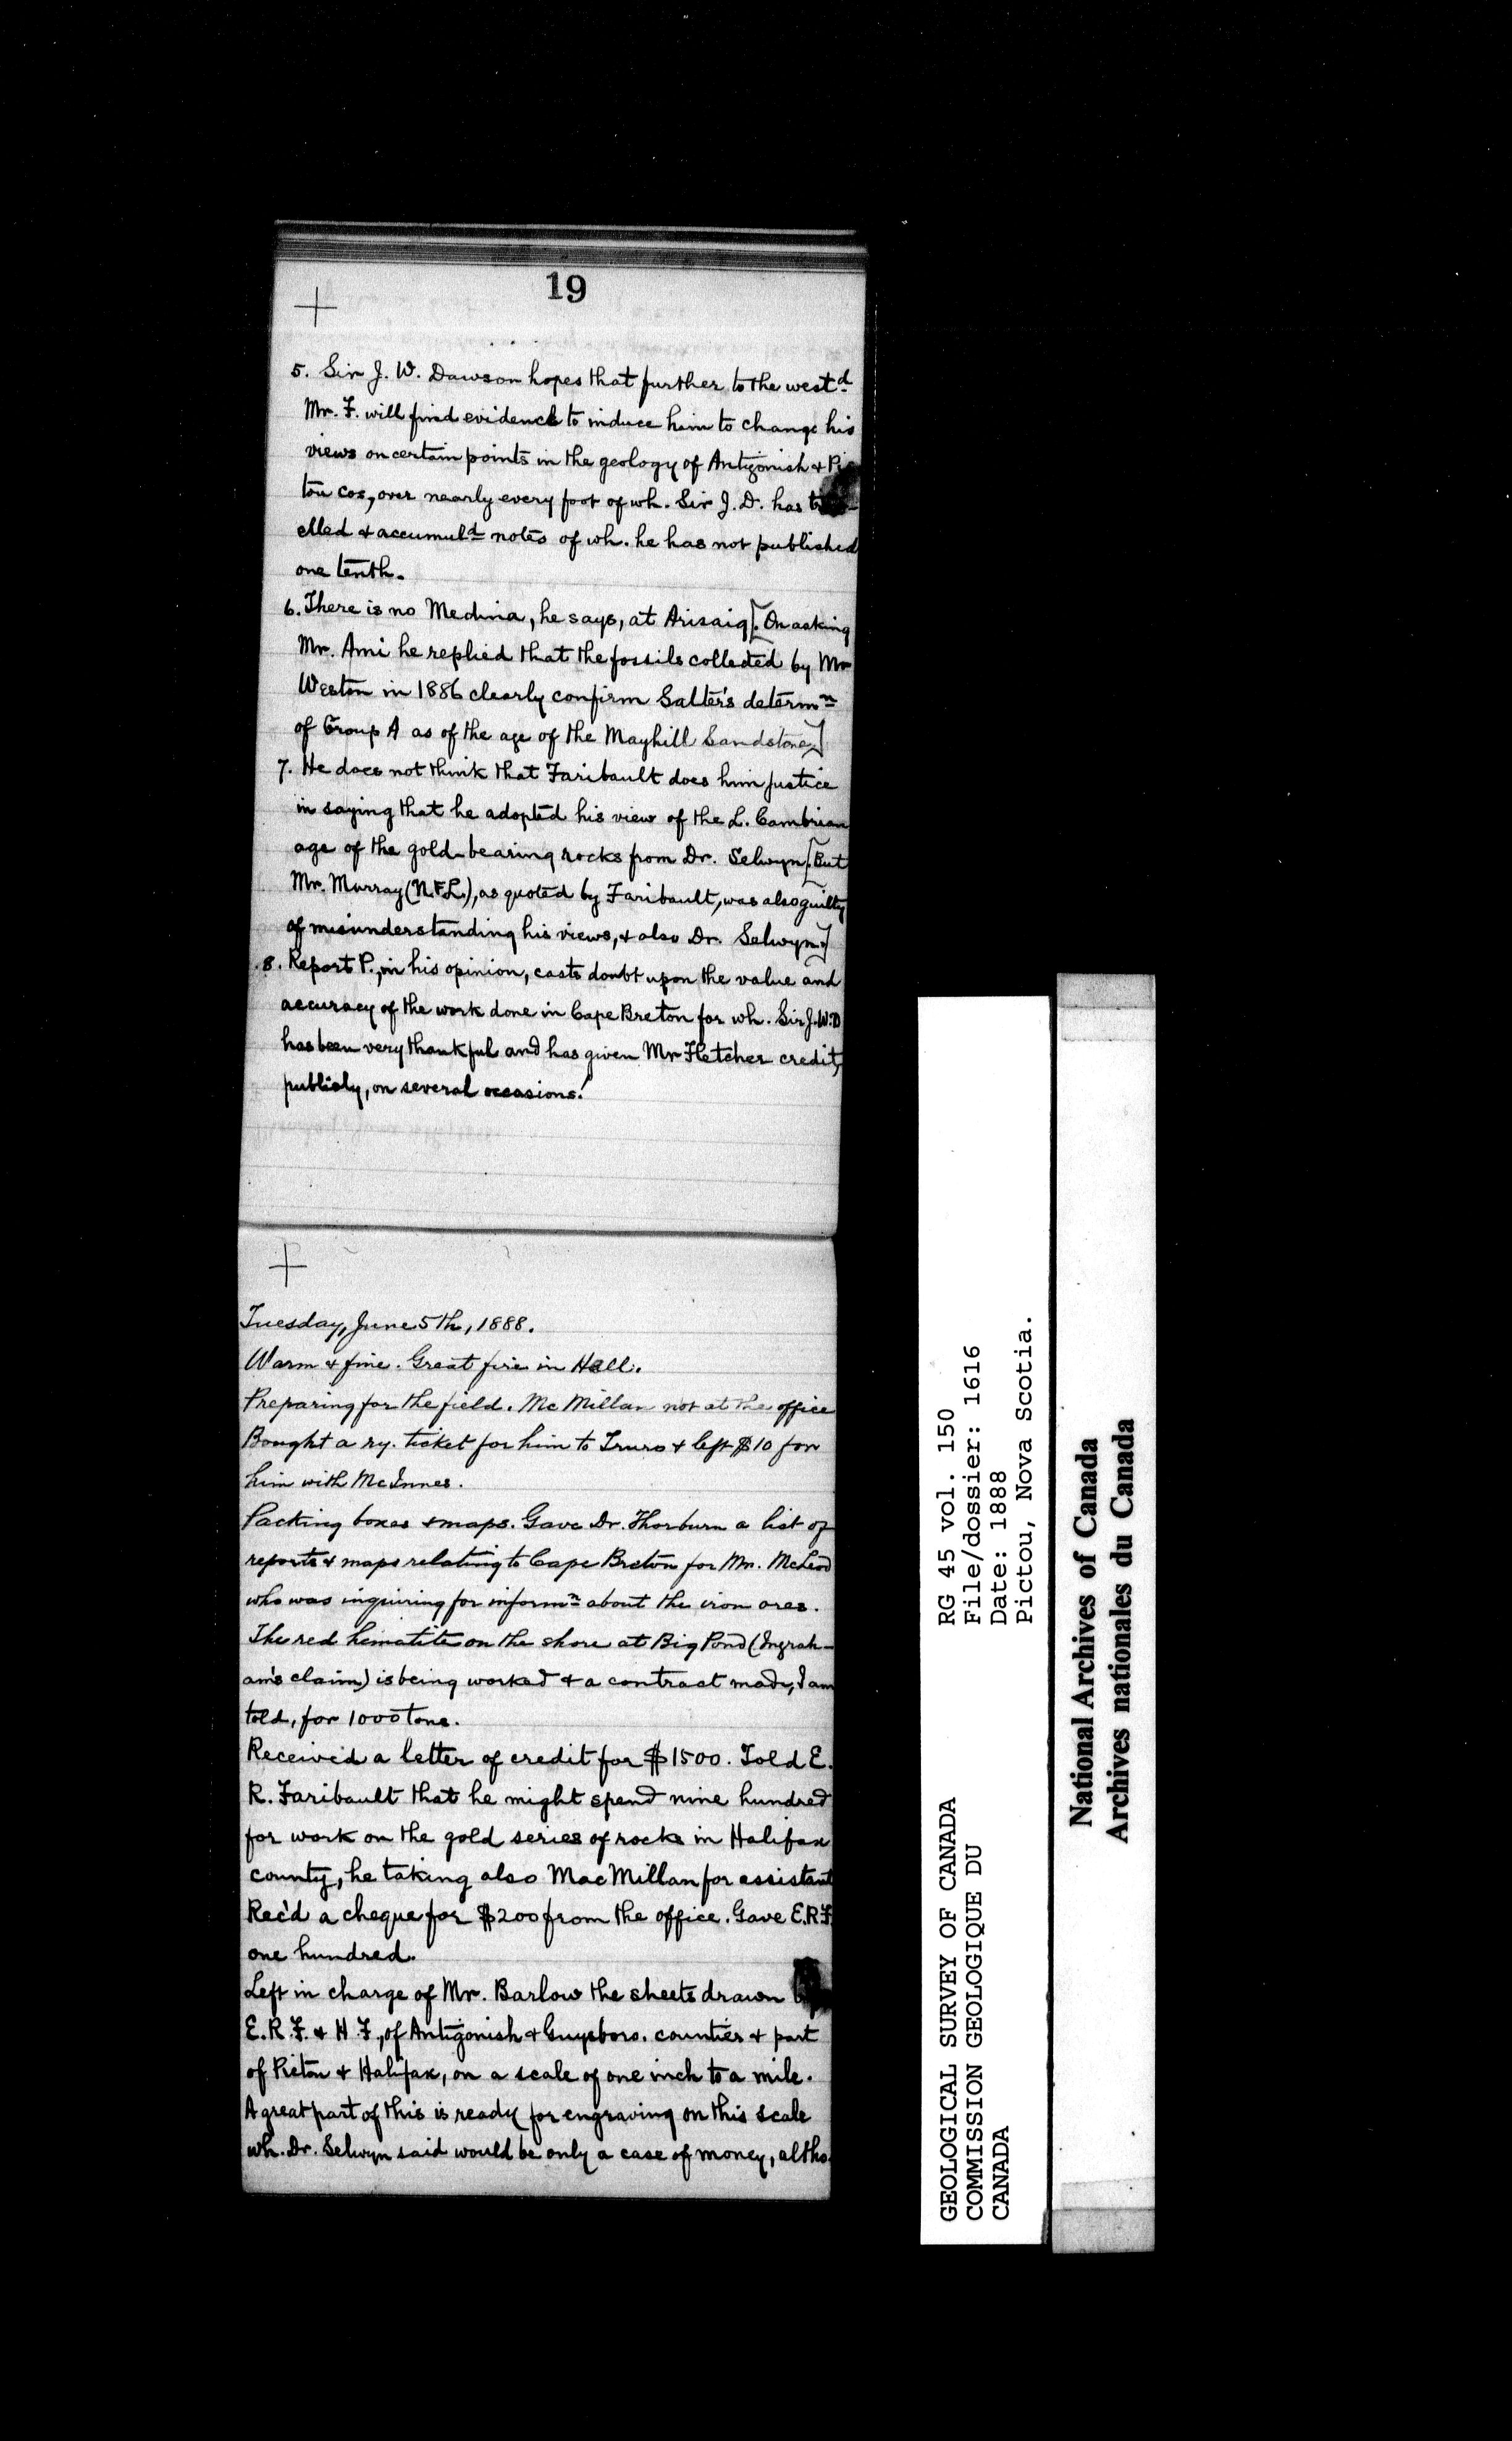 19
5. Sir J. W. Dawson hopes that further to the westd
Mr. F. will find evidence to induce him to change his
views on certain points in the geology of Antigonish & Pic
tou cos, over nearly every foot of wh. Sir J. D. has
elled & accumuld notes of wh. he has not published
one tenth.
6. There is no Medina, he says, at Arisaig. [On asking
Mr. Ami he replied that the fossils collected by Mr
Weston in 1886 clearly confirm Salter's determn
of Group A as of the age of the Mayhill Sandstone.]
7. He does not think that Faribault does him justice
in saying that he adopted his view of the L. Cambrian
age of the gold-bearing rocks from Dr. Selwyn. [But
Mr. Murray (N.F.L.), as quoted by Faribault, was also guilty
of misunderstanding his views, & also Dr. Selwyn.]
8. Report P., in his opinion, casts doubt upon the value and
accuracy of the work done in Cape Breton for wh. Sir J.W.D
has been very thankful and has given Mr Fletcher credit,
publicly, on several occasions!
Tuesday, June 5th, 1888.
Warm & fine. Great fire in Hull.
Preparing for the field. McMillan not at the office
Bought a ry. ticket for him to Truro & left $10 for
him with McInnes.
Packing boxes & maps. Gave Dr. Thorburn a list of
reports & maps relating to Cape Breton for Mr. McLeod
who was inquiring for informn about the iron ores.
The red hematite on the shore at Big Pond (Ingrah-
am's claim) is being worked & a contract made, I am
told, for 1000 tons.
Received a letter of credit for $1500. Told E.
R. Faribault that he might spend nine hundred
for work on the gold series of rocks in Halifax
county, he taking also MacMillan for assistant
Rec'd a cheque for $200 from the office. Gave E.R.F.
one hundred.
Left in charge of Mr. Barlow the sheets drawn
E.R.F. & H F., of Antigonish & Guysboro. counties & part
of Pictou & Halifax, on a scale of one inch to a mile.
A great part of this is ready for engraving on this scale
wh. Dr. Selwyn said would be only a case of money, altho.
GEOLOGICAL SURVEY OF CANADA
COMMISSION GEOLOGIQUE DU
CANADA
RG 45 vol. 150
File/dossier: 1616
Date: 1888
Pictou, Nova Scotia.
National Archives of Canada
Archives nationales du Canada